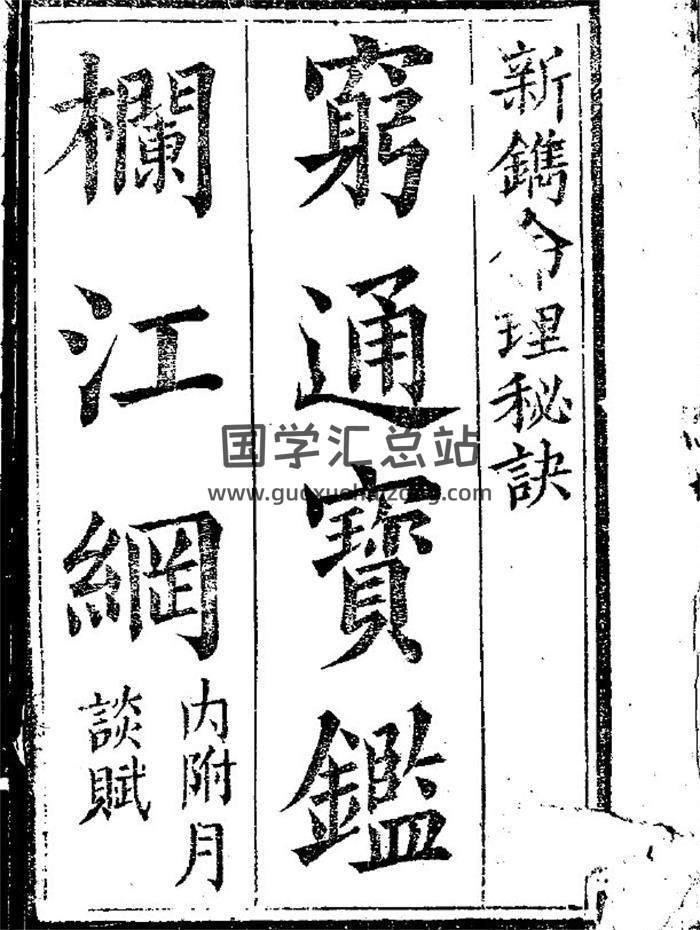 新鐫命理秘訣
窮通寶鑑
欄江網
內附月
談賦
国学汇总站
www.guoxuehuizong.com